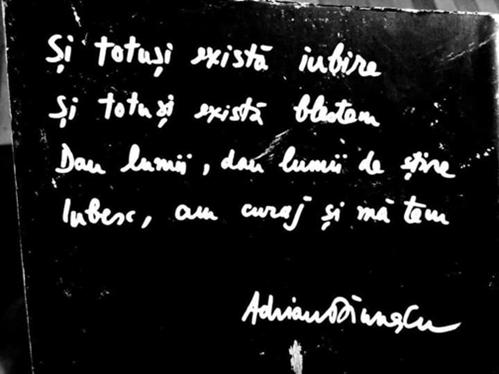 Și totuși există iubire
Și totuși există blestem
Dau lumii, dau lumii de știre
Iubesc, am curaj și mă tem
Adrian Păunescu